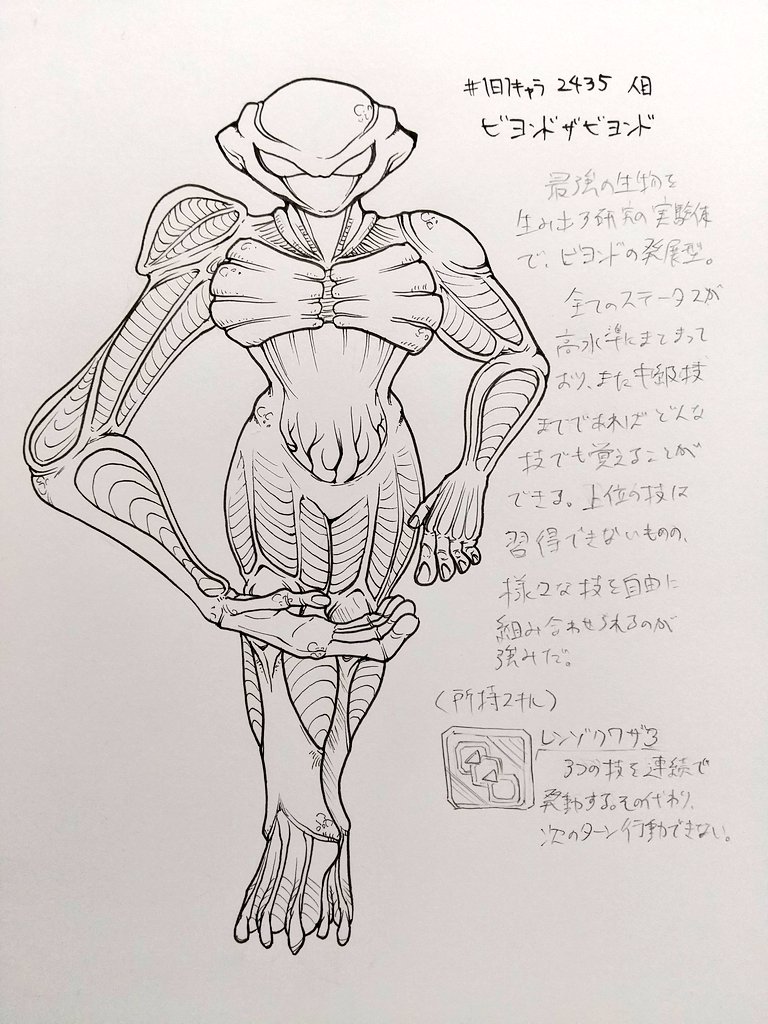 #1日1キャラ 2435 人目
ビヨンドザビヨンド
最強の生物を
生み出す研究の実験体
で、ビヨンドの発展型。
全てのステータスが
高水準にまとまって
おり、また中級技
までであればどんな
技でも覚えることが
できる。上位の技は
習得できないものの、
様々な技を自由に
組み合わせられるのが
強みだ。
(所持スキル)
レンゾクワザ3
3つの技を連続で
発動する。その代わり、
次のターン行動できない。